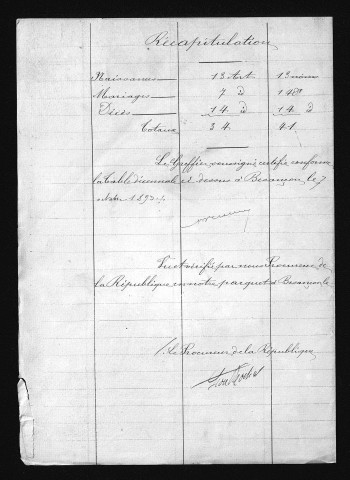 Récapitulation
Naissances 13 Act. 13 noms
Mariages 7 d 14 d
Décès 14 d 14 d
Totaux 34 41
Le Greffier soussigné certifie conforme
la table décennale ci dessus à Besançon le 7
1893 ./.
Vu et vérifié par nous Procureur de
la République en notre parquet à Besançon le
/. Le Procureur de la République